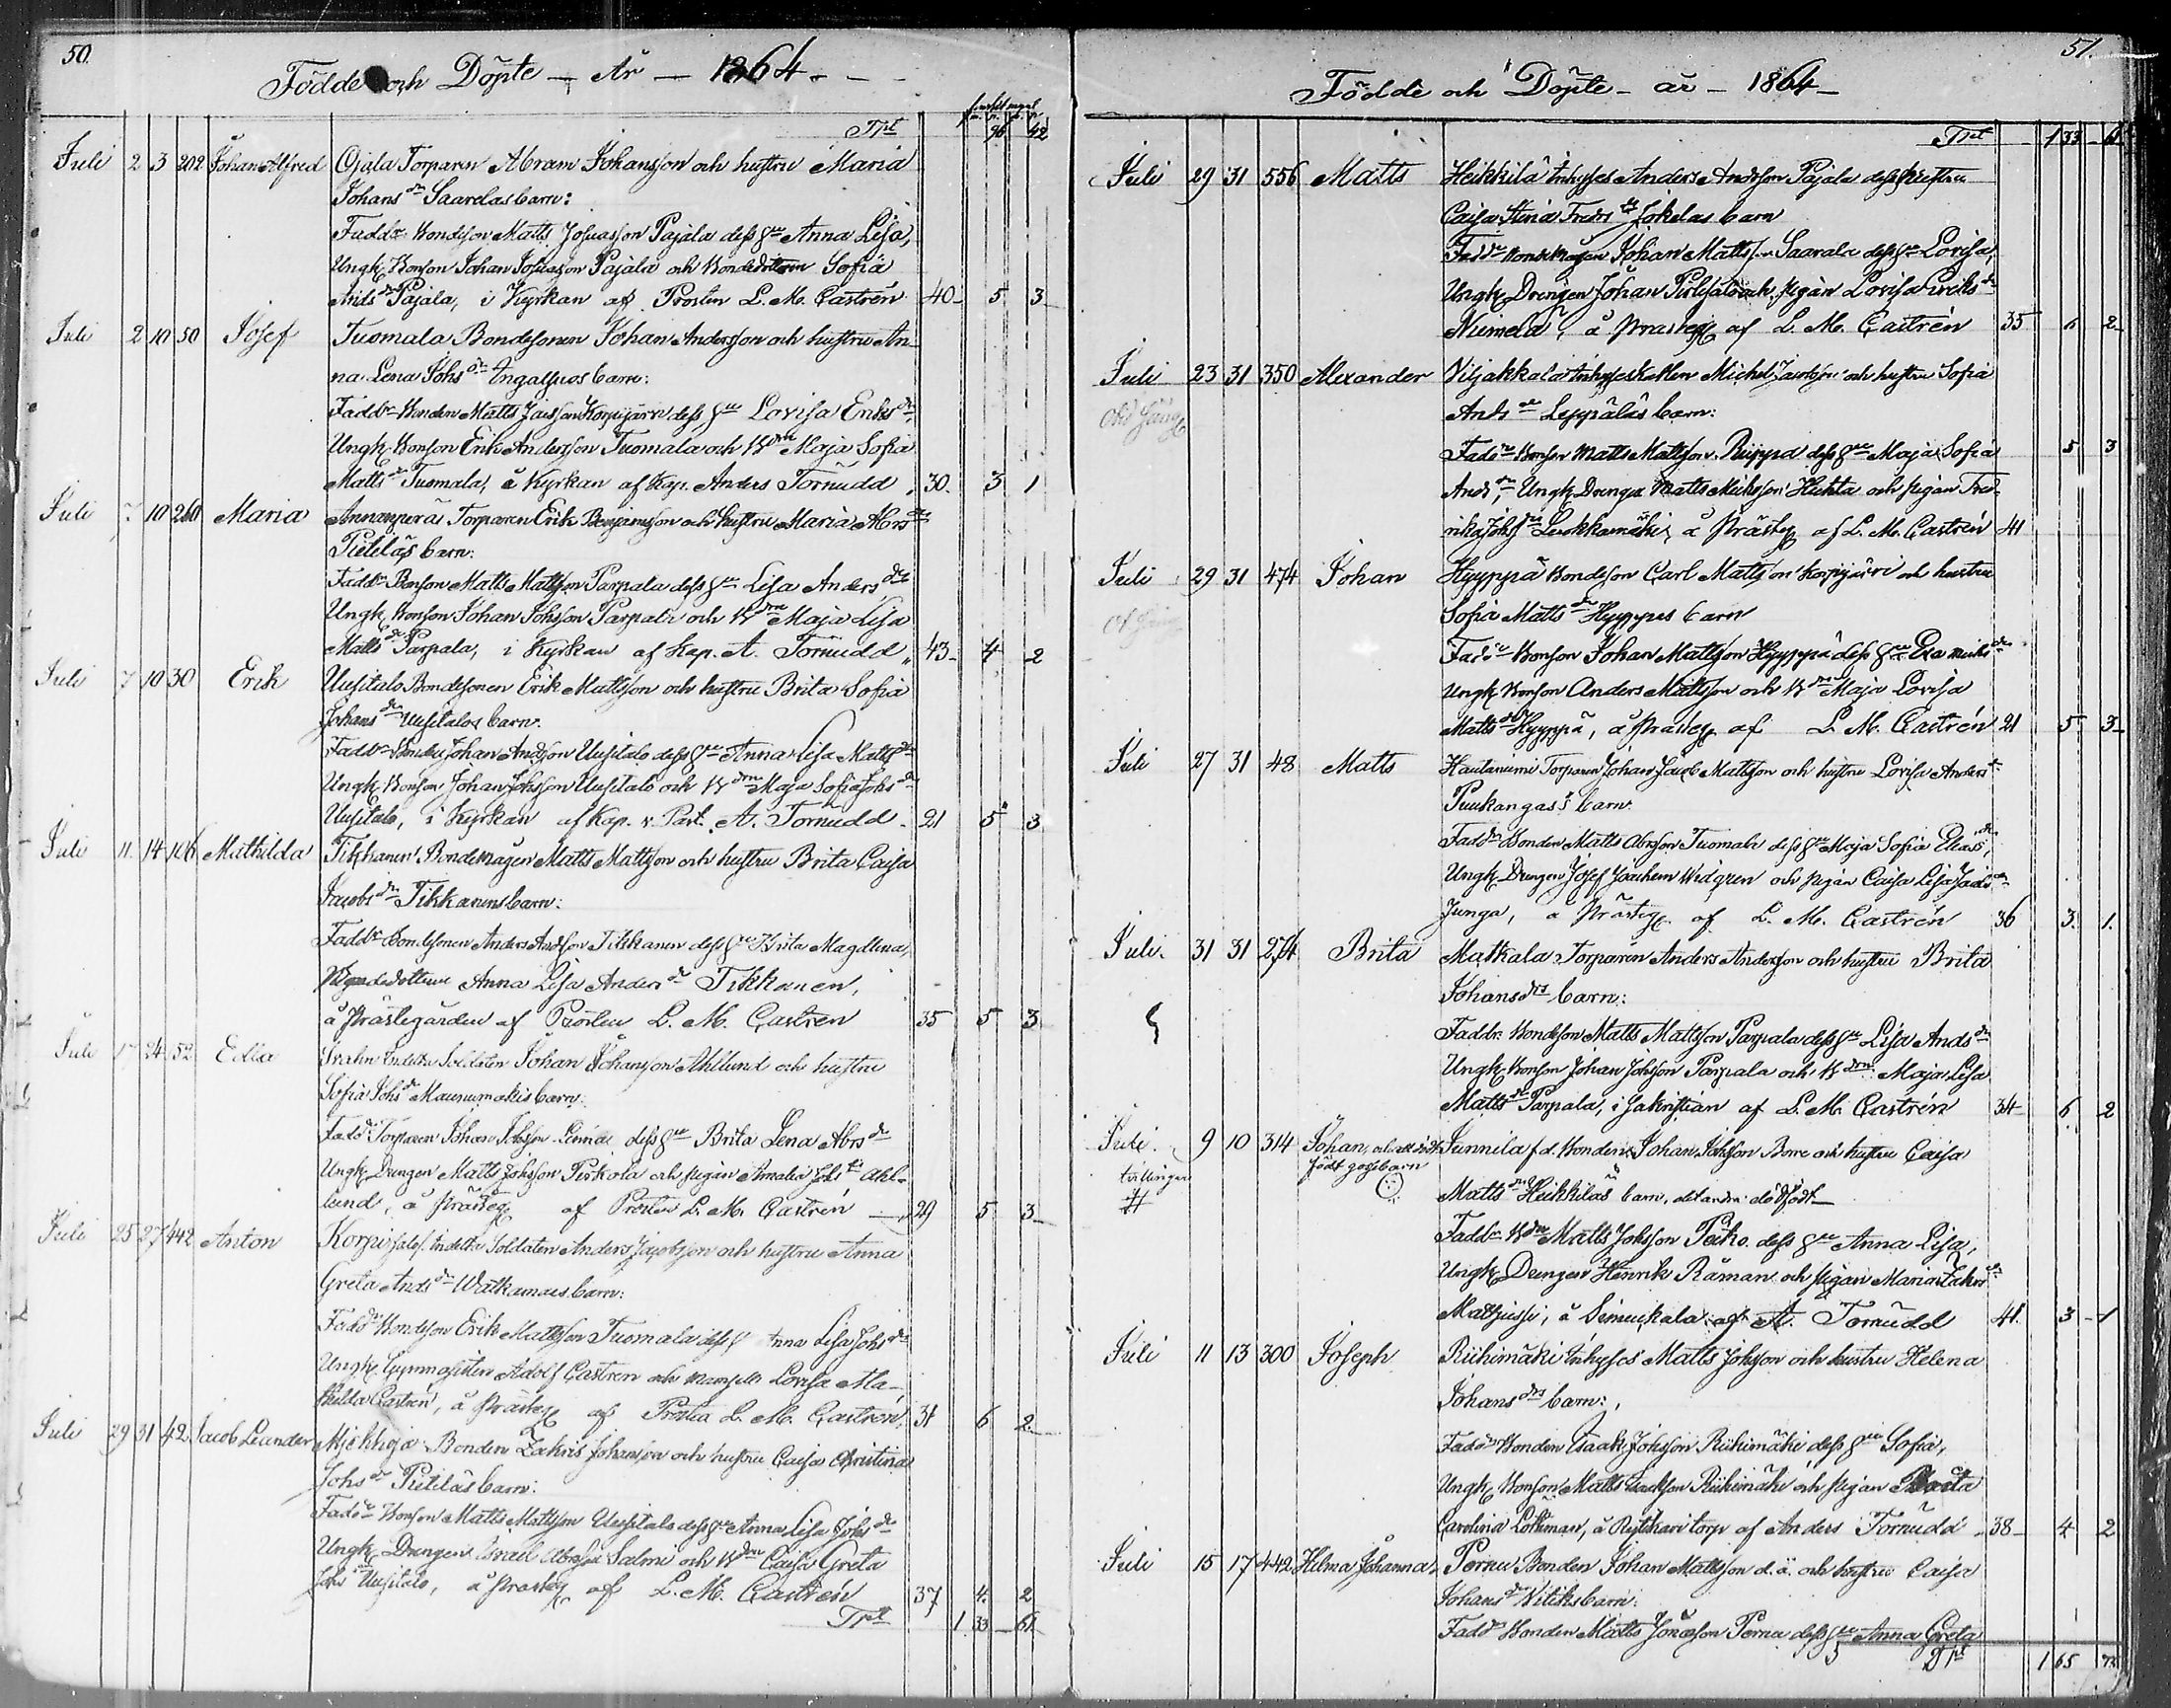 50.
Födde och Döpte - År - 1864 -
Trpt 96 42
Juli 2 3 202 Johan Alfred Ojala Torparen Abram Johansson och hustru Maria
Johans dr Saarelas barn:
Faddr Bondeson Matts Josuasson Pajala dess hu Anna Lisa,
Ungk. Bonson Johan Josuasson Pajala och Bondedottren Sofia
Ands dr Pajala, i Kyrkan af Prosten L. M. Castrén 40 5 3
Juli 2 10 50 Josef Tuomala Bondesonen Johan Andersson och hustru An-
na Lena Johs dr Ingalsuos barn:
Faddr Bonden Matts Korpijärvi dess hu Lovisa Eriks dr
Ungk. Bonson Erik Andersson Tuomala och Bdrn Maja Sofia
Matts dr Tuomala, i Kyrkan af Kap. Anders Törnudd 30 3 1
Juli 10 260 Maria Annanperä Torparen Erik Benjaminsson och hustru Maria Abrs dr
Pietiläs barn:
Faddr Bonson Matts Mattsson Parpala dess hu Lisa Anders dr
Ungk. Bonson Johan Johsson Parpala och Bdrn Maja Lisa
Matts dr Parpala, i Kyrkan af Kap. A. Törnudd 43 4 2
Juli 7 10 30 Erik Uusitalo Bondesonen Erik Mattsson och hustru Brita Sofia
Johans dr Uusitalos barn:
Faddr Bonden Johan Andsson Uusitalo dess hu Anna Lisa Matts dr
Ungk. Bonson Johan Johsson Uusitalo och Bdrn Maja Sofia Johs dr
Uusitalo, i Kyrkan af Kap. v. Past. A. Törnudd 21 5 3
Juli 11 14 106 Mathilda Tikkanen Bondemågen Matts Mattsson och hustru Brita Caisa
Jacobs dr Tikkanens barn:
Faddr Bondesonen Anders Andsson Tikkanen dess hu Brita Magdlena,
Bondedottren Anna Lisa Anders dr Tikkanen,
å Prästegården af Prosten L. M. Castrén 35 5 3
Juli 24 52 Edla Indelta Soldaten Johan Johansson Ahllund och hustru
Sofia Johs dr Maunumäkis barn:
Faddr Torparen Johan Johsson dess hu Brita Lena Abrs dr
Ungk. Drengen Matts Johsson Pirkola och pigan Amalia Johs dr Ahl-
lund, å Prästeg. af Prosten L. M. Castrén 29 5 3
Juli 25 27 442 Anton Indelta Soldaten Anders Jacobsson och hustru Anna
Greta Ands dr Watkamaas barn:
Faddr Bondeson Erik Mattsson Tuomala dess Anna Lisa Johs dr
Ungk. Gymnasisten Adolf Castrén och Mamsell Lovisa Ma-
thilda Castrén, å Prästeg. af Prosten L. M. Castrén 31 6 2
Juli 29 31 42 Jacob Leander Bonden Zakris Johansson och hustru Caisa Christina
Johs dr Pietiläs barn:
Faddr Bonson Matts Mattsson Uusitalo dess hu Anna Lisa Johs dr
Ungk. Drengen Israel Salmi och Bdrn Caisa Greta
Johs dr Uusitalo, å Prästeg. af L. M. Castrén 37 4 2
Trpt 1 33 61
51.
Födde och Döpte - år - 1864 -
Trpt 1 33 61
Juli 29 31 556 Matts Heikkilä Inhyses Anders Andsson Pajala dess hustru
Caisa Stina Fredrs dr Jokelas barn
Faddr Bondemågen Johan Mattsson Saarela dess hu Lovisa,
Ungk. Drengen Johan och pigan Lovisa Eriks dr
Niemelä, å Prästeg. af L. M. Castrén 35 6 2
Juli 23 31 350 Alexander Viljakkala Inhyses Karlen Michel Jacobsson och hustru Sofia
Ands dr Leppäläs barn:
Faddr Bonson Matts Mattsson Riippa dess hu Maja Sofia 5 3
Ands dr Ungk. Drengen Matts Micksson Huhta och pigan Fred-
rika Johs dr Luokkamäki, å Prästeg. af L. M. Castrén 41
Juli 29 31 474 Johan Hyyppä Bondeson Carl Mattsson Korpijärvi och hustru
Sofia Matts dr Hyyppäs barn
Faddr Bonson Johan Mattsson Hyyppä dess hu Eva Micks dr
Ungk. Bonson Anders Mattsson och Bdrn Maja Lovisa
Matts dr Hyyppä, å Prästeg. af L. M. Castrén 21 5 3
Juli 27 31 48 Matts Hautaniemi Torparen Johan Jacob Mattsson och hustru Lovisa Anders dr
Puukangas's barn:
Faddr Bonden Matts Abrsson Tuomala dess hu Maja Sofia Elias dr,
Ungk. Drengen Josef Joachim Widgren och pigan Caisa Lisa Jacobs dr
Junga, å Prästeg. af L. M. Castrén 36 3 1
Juli 31 31 274 Brita Matkala Torparen Anders Andersson och hustru Brita
Johansdrs barn:
Faddr Bondeson Matts Mattsson Parpala dess hu Lisa Ands dr
Ungk. Bonson Johan Johsson Parpala och Bdrn Maja Lisa
Matts dr Parpala, i Sakristian af L. M. Castrén 34 6 2
Juli 9 10 314 Johan, och ett dödt Junnila f.d. Bonden Johan Johsson Borre och hustru Caisa
tvillingar född gossebarn
Matts dr Heikkiläs barn, det andra dödfödt
Faddr Bdn Matts Johsson Peiko dess hu Anna Lisa,
Ungk. Drengen Henrik Råman och pigan Maria Zakrs dr
å af A. Törnudd 41 3 1
Juli 11 13 300 Joseph Riihimäki Inhyses Matts Johsson och hustru Helena
Johansdrs barn:
Faddr Bonden Isaak Johsson Riihimäki dess hu Sofia,
Ungk. Bonson Matts Isaksson Riihimäki och pigan
Carolina å torp af Anders Törnudd 38 4 2
Juli 15 17 442 Hilma Johanna Pernu Bonden Johan Mattsson d.ä. och hustru Caisa
Johans dr Vitiks barn:
Faddr Bonden Matts Jonasson Pernu dess hu Anna Greta
Trpt 1 65 72